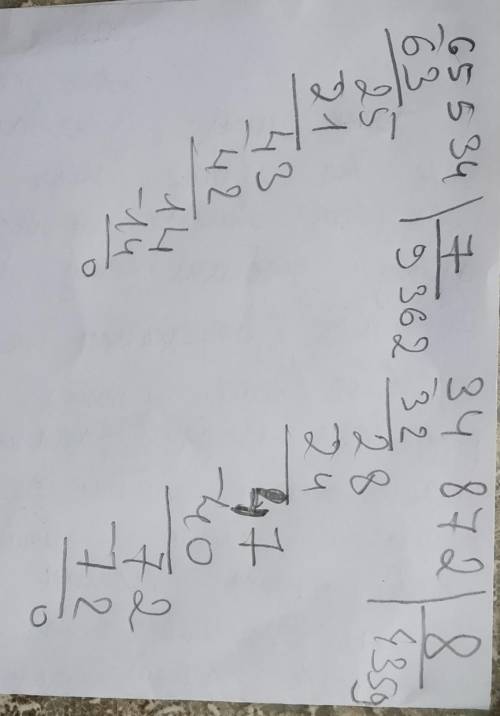 65 534 ) 7
-63 9362
25
-21
43
-42
14
-14
0
34 872 ) 8
-32 4359
28
-24
47
-40
72
-72
0